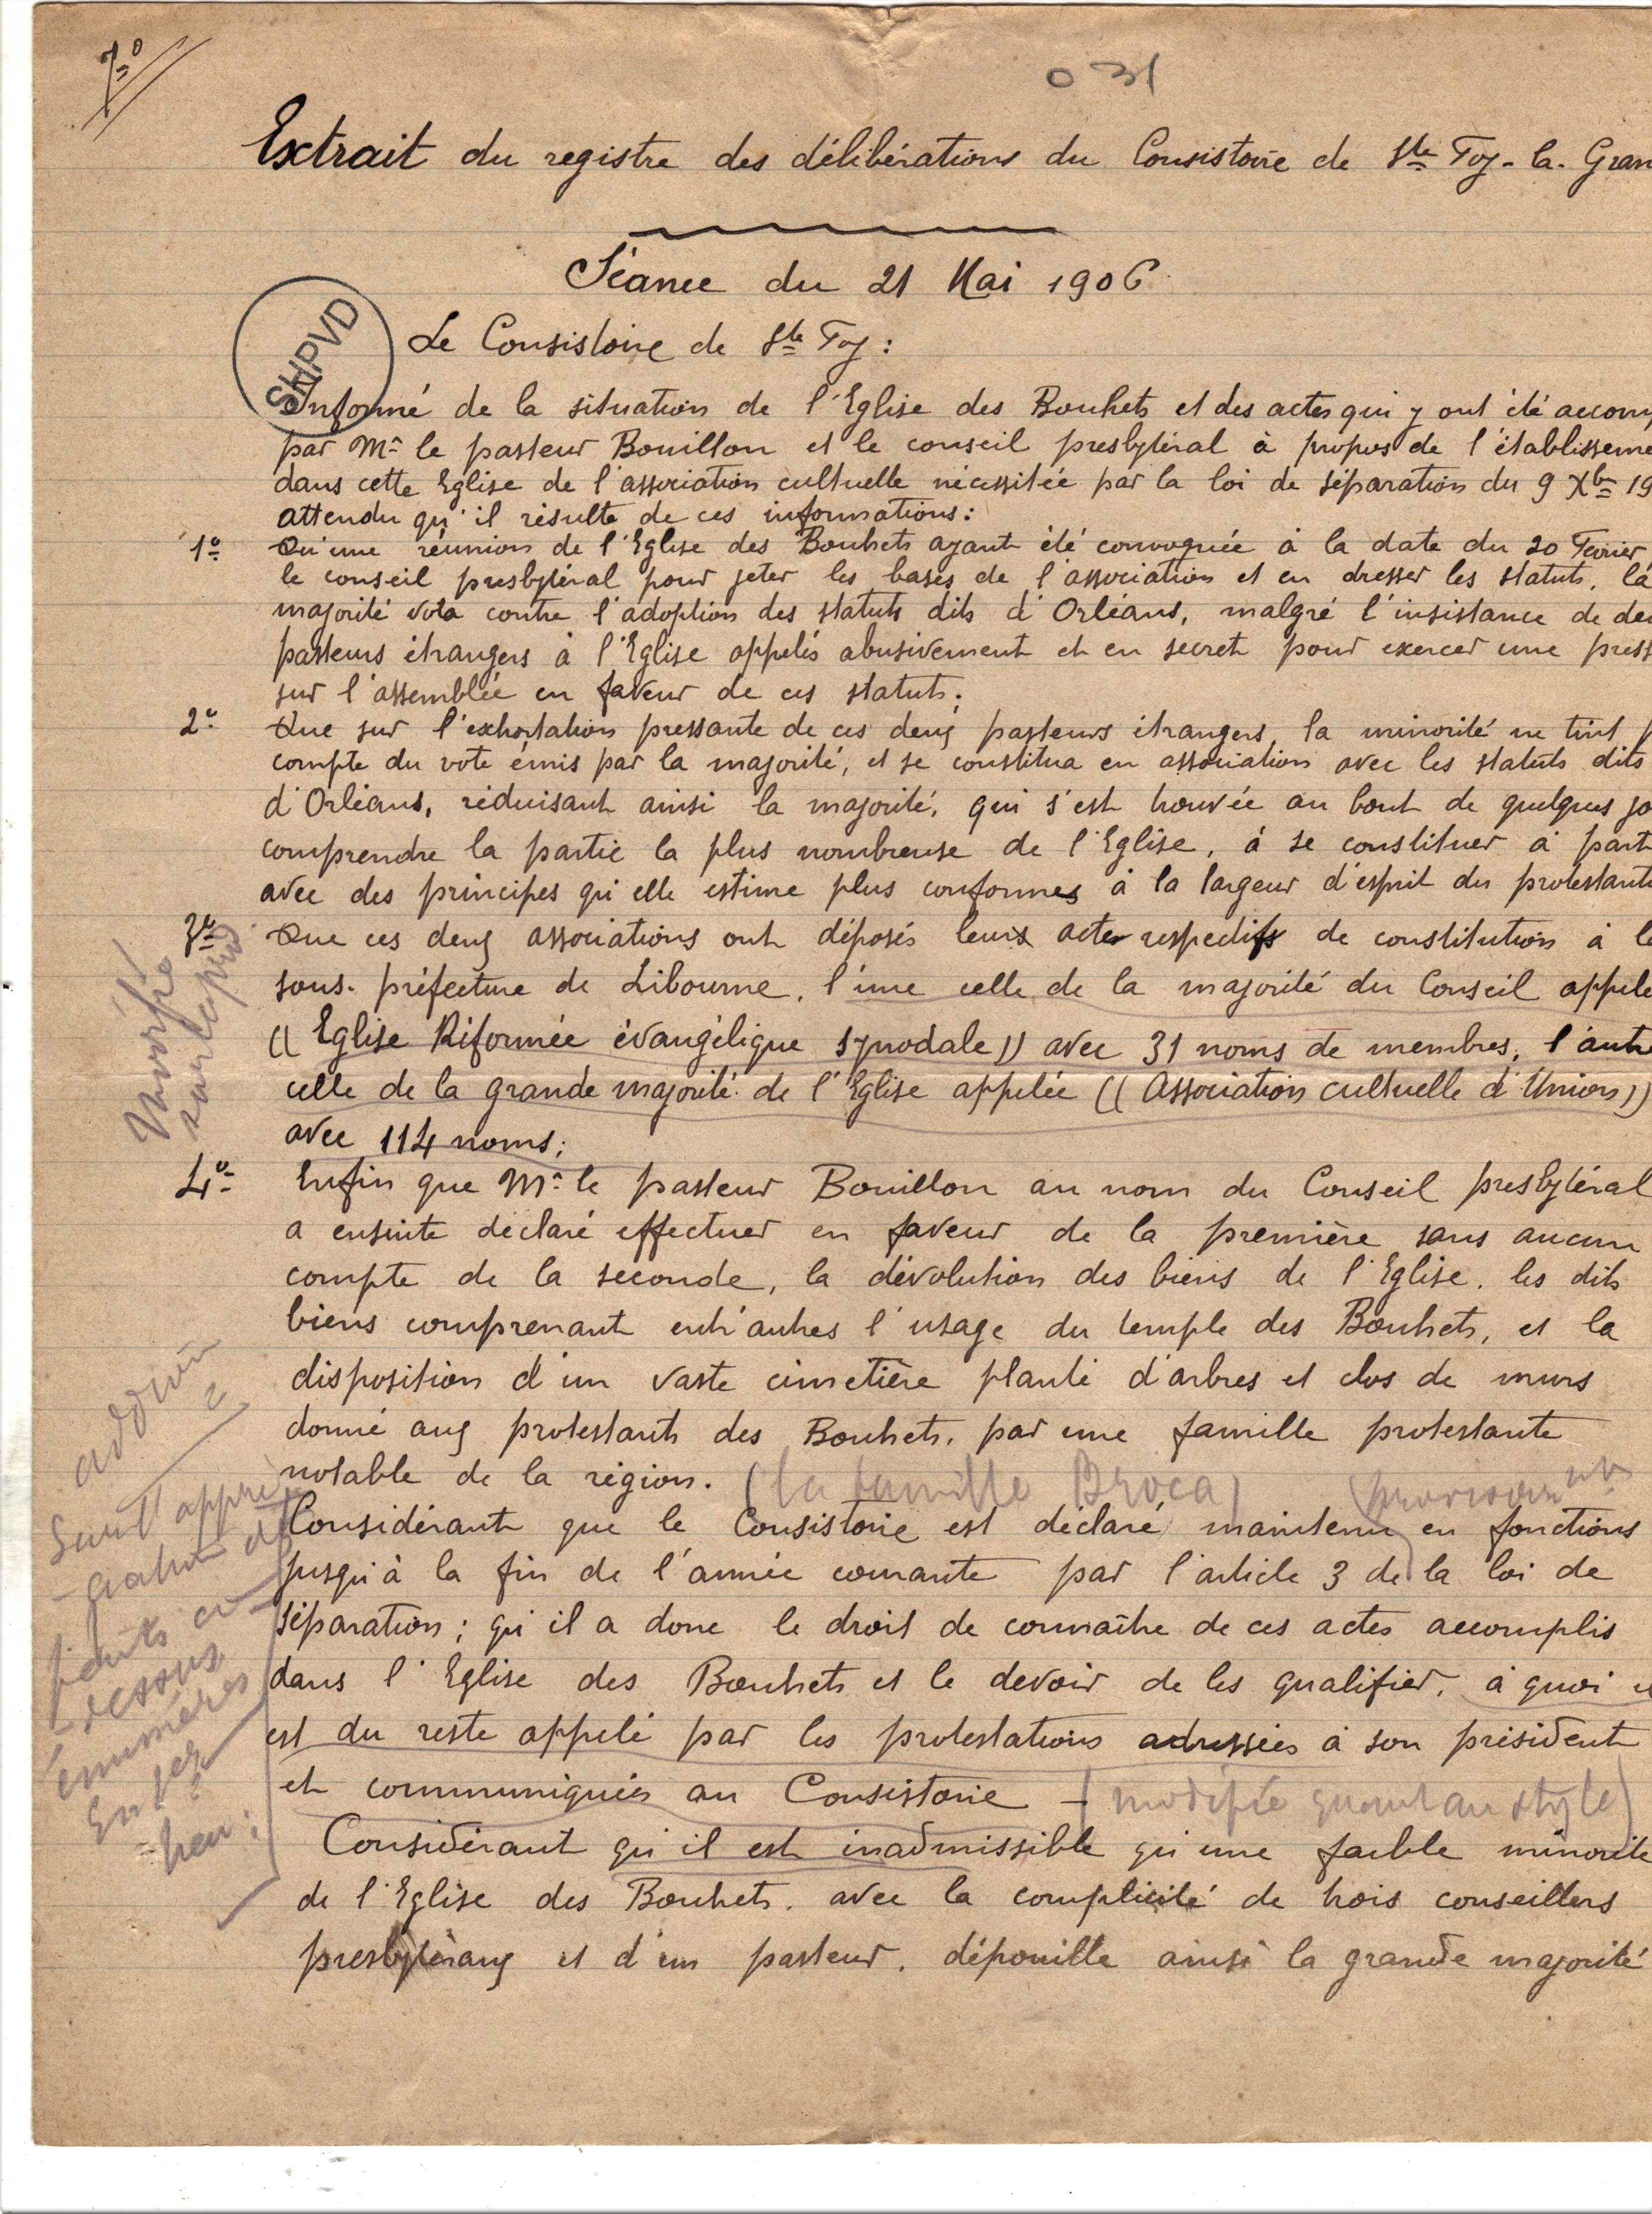 7°
031
Extrait du registre des délibérations du Consistoire de Ste Foy-la-Gran
Séance du 21 Mai 1906
SHPVD
Le Consistoire de Ste Foy :
Informé de la situation de l'Eglise des Bouhets et des actes qui y ont été accom
par Mr le pasteur Bouillon et le conseil presbytéral à propos de l'établisseme
dans cette Eglise de l'association cultuelle nécessitée par la loi de séparation du 9 Xbre 19
attendu qu'il résulte de ces informations :
1° Qu'une réunion de l'Eglise des Bouhets ayant été convoquée à la date du 20 Février
le conseil presbytéral pour jeter les bases de l'association et en dresser les statuts, la
majorité vota contre l'adoption des statuts dits d'Orléans, malgré l'insistance de de
pasteurs étrangers à l'Eglise appelés abusivement et en secret pour exercer une press
sur l'assemblée en faveur de ces statuts ;
2° Que sur l'exhortation pressante de ces deux pasteurs étrangers, la minorité ne tint p
compte du vote émis par la majorité, et se constitua en association avec les statuts dits
d'Orléans, réduisant ainsi la majorité, qui s'est trouvée au bout de quelques jo
comprendre la partie la plus nombreuse de l'Eglise, à se constituer à part
avec des principes qu'elle estime plus conformes à la largeur d'esprit du protestanti
3° Que ces deux associations ont déposés leurs actes respectifs de constitution à la
sous-préfecture de Libourne, l'une celle de la majorité du Conseil appelé
(( Eglise Réformée évangélique synodale )) avec 31 noms de membres, l'autre
celle de la grande majorité de l'Eglise appelée (( Association cultuelle d'Union ))
avec 114 noms ;
4° Enfin que Mr le pasteur Bouillon au nom du Conseil presbytéral
a ensuite déclaré effectuer en faveur de la première sans aucun
compte de la seconde, la dévolution des biens de l'Eglise, les dits
biens comprenant entr'autres l'usage du temple des Bouhets, et la
disposition d'un vaste cimetière planté d'arbres et clos de murs
donné aux protestants des Bouhets, par une famille protestante
notable de la région. (la famille Broca)
Considérant que le Consistoire est déclaré maintenu en fonctions
jusqu'à la fin de l'année courante par l'article 3 de la loi de
séparation ; qu'il a donc le droit de connaître de ces actes accomplis
dans l'Eglise des Bouhets et le devoir de les qualifier, à quoi il
est du reste appelé par les protestations adressées à son président
et communiquées au Consistoire - (modifié quant au style)
Considérant qu'il est inadmissible qu'une faible minorité
de l'Eglise des Bouhets, avec la complicité de trois conseillers
presbytéraux et d'un pasteur, dépouille ainsi la grande majorité
sauf l'appré
-ciation des
faits ci-
-dessous
énumérés